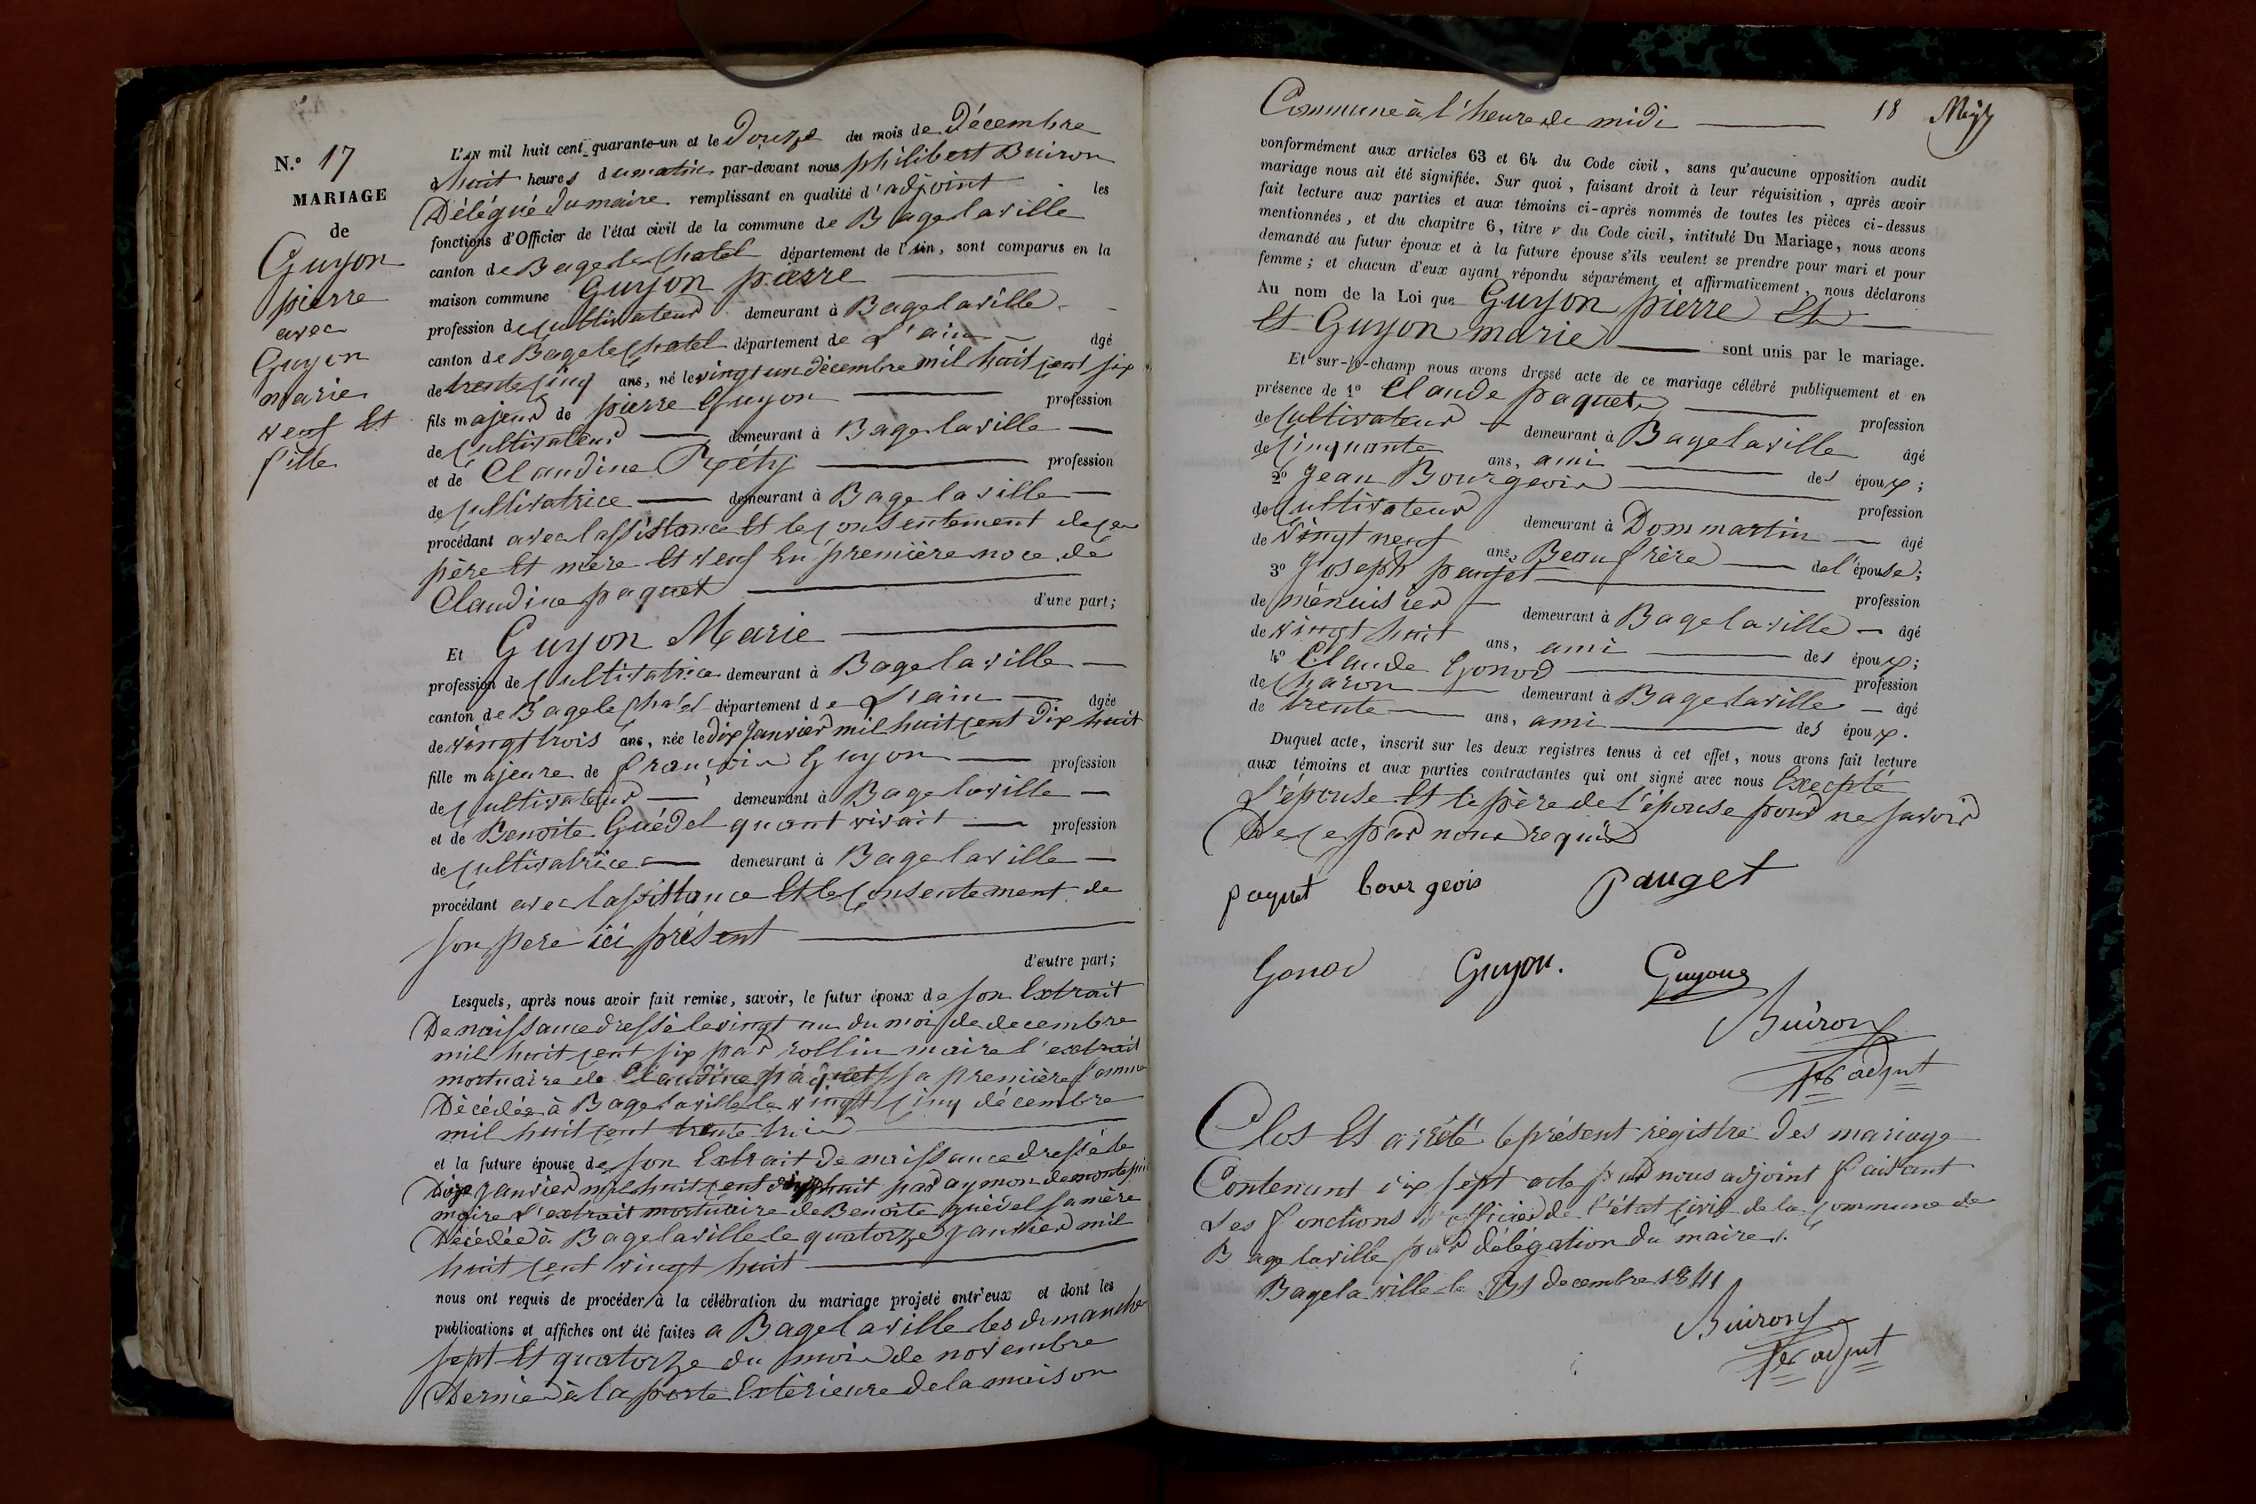 N.° 17
MARIAGE
de
Guyon
pierre
avec
Guyon
marie
veuf Et
fille
L'AN mil huit cent quarante-un et le Douze du mois de Décembre
à huit heures du matin par-devant nous philibert Buiron
Délégué du maire remplissant en qualité d'adjoint les
fonctions d'Officier de l'état civil de la commune de Bagelaville
canton de Bagelechatel département de l'Ain, sont comparus en la
maison commune Guyon pierre
profession de Cultivateur demeurant à Bagelaville
canton de Bagelechatel département de L'ain âgé
de trente cinq ans, né le vingt un décembre mil huit cent six
fils majeur de pierre Guyon profession
de Cultivateur demeurant à Bagelaville
et de Claudine profession
de Cultivatrice demeurant à Bagelaville
procédant avec lassistance Et le consentement de ces
père Et mère Et veuf En première noce de
Claudine paquet d'une part;
Et Guyon Marie
profession de Cultivatrice demeurant à Bagelaville
canton de Bagelechatel département de L'ain âgée
de vingt trois ans, née le Dix Janvier mil huit cent Dix huit
fille majeure de françois Guyon profession
de Cultivateur demeurant à Bagelaville
et de Benoite Guédel quant vivait profession
de Cultivatrice demeurant à Bagelaville
procédant avec lassistance Et le Consentement de
son pere ici présent
d'autre part;
Lesquels, après nous avoir fait remise, savoir, le futur époux de son Extrait
De naissance dressé le vingt un du mois de decembre
mil huit cent six par rollin maire l'extrait
mortuaire de Claudine paquet sa première famme
Décédée à Bagelaville le vingt cinq décembre
mil huit cent trente trois
et la future épouse de son Extrait De naissance dressé le
Dix Janvier mil huit cent dix huit par aymon de
maire L'extrait mortuaire de Benoite guédel sa mère
Décédée à Bagelaville le quatorze Janvier mil
huit cent vingt huit
nous ont requis de procéder à la célébration du mariage projeté entr'eux et dont les
publications et affiches ont été faites a Bagelaville les dimanche
sept Et quatorze du mois de novembre
Dernier à la porte Extèrieure de la maison
Commune à l'heure de midi 18
conformément aux articles 63 et 64 du Code civil, sans qu'aucune opposition audit
mariage nous ait été signifiée. Sur quoi, faisant droit à leur réquisition, après avoir
fait lecture aux parties et aux témoins ci-après nommés de toutes les pièces ci-dessus
mentionnées, et du chapitre 6, titre v du Code civil, intitulé Du Mariage, nous avons
demandé au futur époux et à la future épouse s'ils veulent se prendre pour mari et pour
femme; et chacun d'eux ayant répondu séparément et affirmativement, nous déclarons
Au nom de la Loi que Guyon pierre Et
Et Guyon marie sont unis par le mariage.
Et sur-le-champ nous avons dressé acte de ce mariage célébré publiquement et en
présence de 1° Claude paquet profession
de Cultivateur demeurant à Bagelaville âgé
de Cinquante ans, ami des époux;
2° Jean Bourgeois profession
de Cultivateur demeurant à Dommartin âgé
de Vingt neuf ans, Beau frère de l'épouse;
3° Joseph pauget profession
de ménuisier demeurant à Bagelaville âgé
de vingt huit ans, ami des époux;
4° Claude Gonod profession
de Charon demeurant à Bagelaville âgé
de trente ans, ami des époux.
Duquel acte, inscrit sur les deux registres tenus à cet effet, nous avons fait lecture
aux témoins et aux parties contractantes qui ont signé avec nous Excepté
L'épouse Et le père de l'épouse pour ne savoir
De ce par nous requis
paquet bourgeois Pauget
Gonod Guyon. Guyon
Buiron
adjut
Clos Et arrêté le présent régistre des mariage
Contenant dix sept acte par nous adjoint faisant
Les fonctions d'officier de l'état civil de la commune de
Bagelaville par délégation du maire.
Bagela ville le 31 decembre 1841
Buiron
adjut